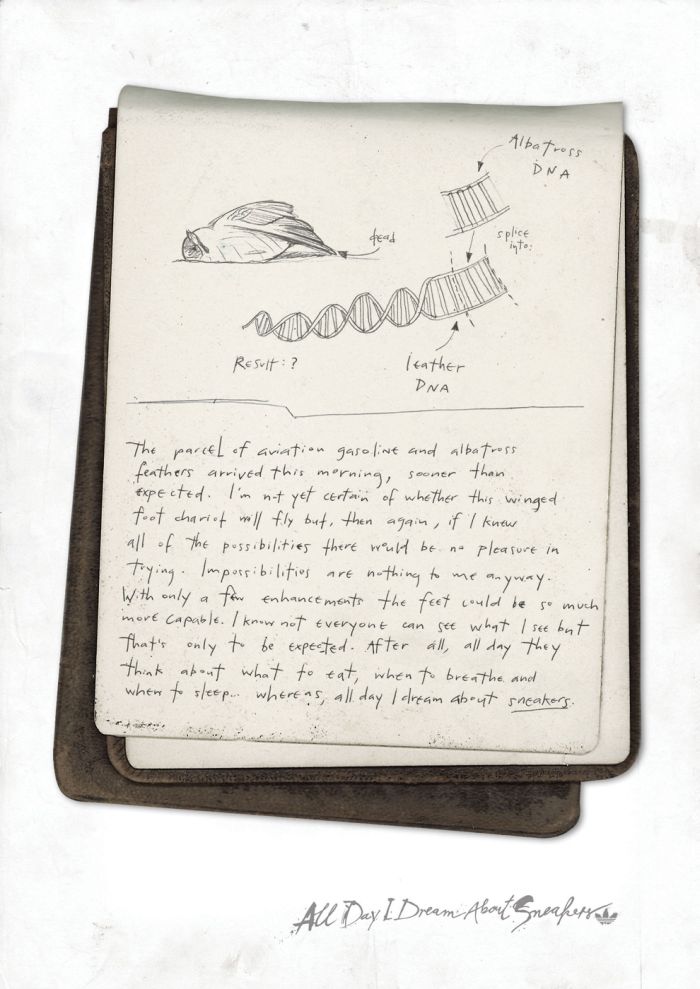 Albatross
DNA
dead
splice
into:
Result: ?
leather
DNA
The parcel of aviation gasoline and albatross
feathers arrived this morning, sooner than
expected. I'm not yet certain of whether this winged
foot chariot will fly but, then again, if I knew
all of the possibilities there would be no pleasure in
trying. Impossibilities are nothing to me anyway.
With only a few enhancements the feet could be so much
more capable. I know not everyone can see what I see but
that's only to be expected. After all, all day they
think about what to eat, when to breathe and
when to sleep... whereas, all day I dream about sneakers.
All Day I Dream About Sneakers